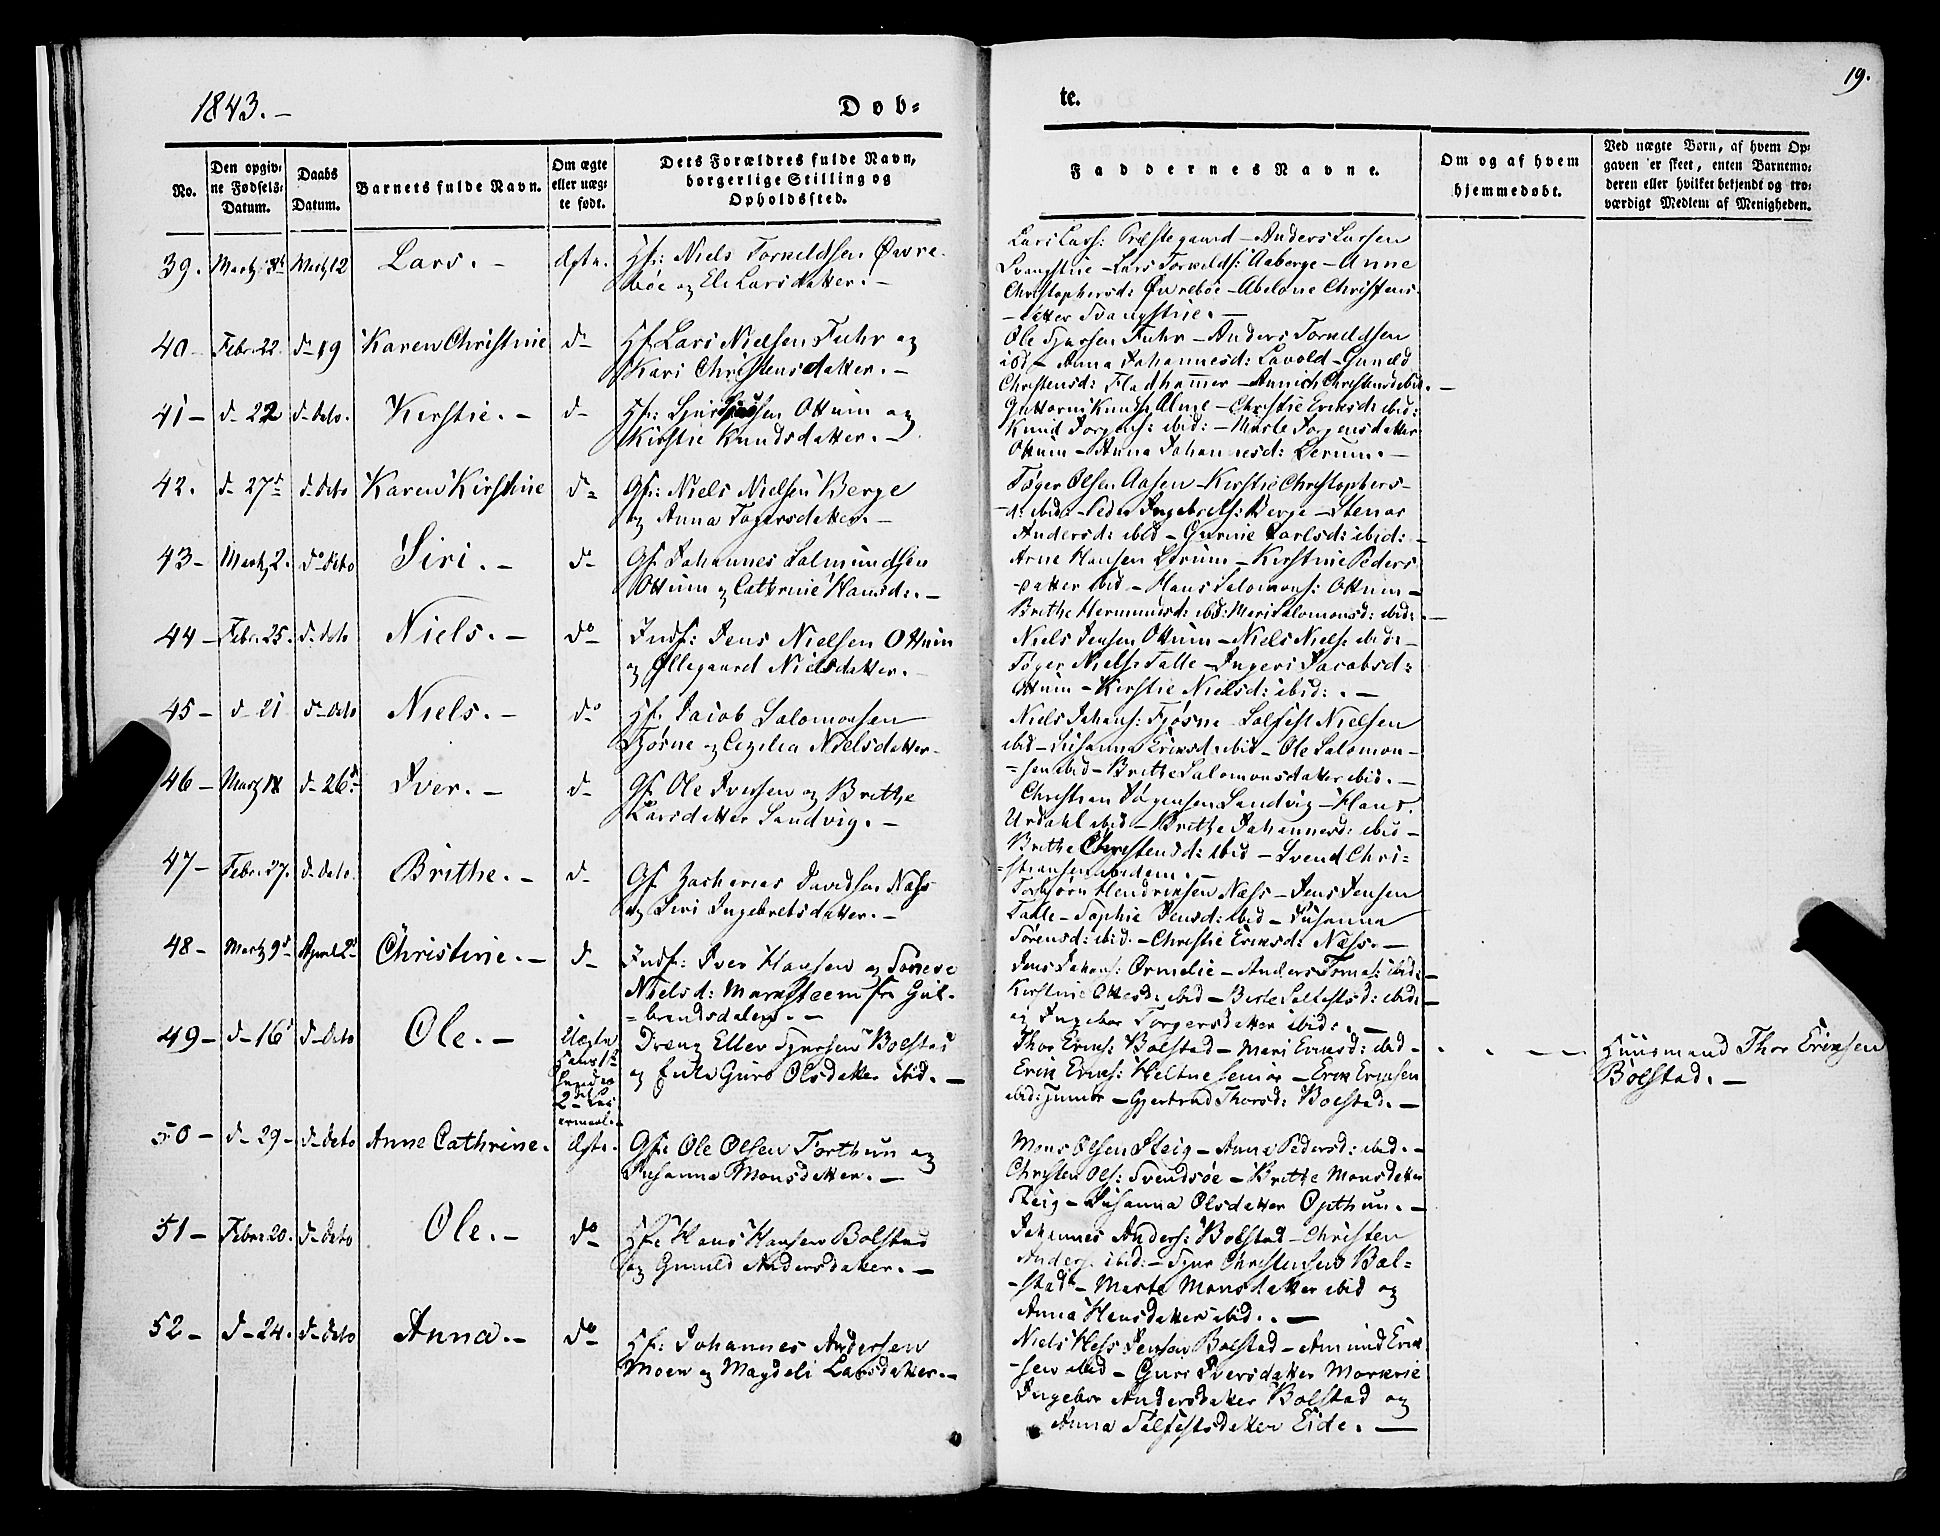 1843.-
Døb-
te.
19.
No.
Den opgiv-
ne Fødsels-
Datum.
Daabs
Datum.
Barnets fulde Navn.
Om ægte
eller uæg-
te født.
Dets Forældres fulde Navn,
borgerlige Stilling og
Opholdssted.
Faddernes Navne.
Om og af hvem
hjemmedøbt.
Ved uægte Børn, af hvem Op-
gaven er skeet, enten Barnemo-
deren eller hvilket betjendt og tro-
værdigt Medlem af Menigheden.
39. Martz Martz 12 Lars.- Ægte. Hf: Niels Torkeldsen Øvre-
bøe og Eli Larsdatter.-
Lars Lars: Præstegaard - Anders Larsen
Lars Torkelds: Aaberge - Anne
Christophersd: Øvrebøe - Abelone Christens-
40- Febr: 22. d- 19 Karen Christine d- Hf Lars Nielsen Fuhr og
Kari Christensdatter.-
Ole Fuhr - Anders Torkeldsen
ibd - Anna Johannesd: Løvold - Gunild
Christensd: Fladhammer - Annich Christensd ibid.-
41- d- 22 d- dito. Kerstie.- d- Hf: Ottum og
Kirstie Knudsdatter.-
Guttorm Knuds: Alme - Christie Eriksd: ibid:
Knud Jørgens: ibid: - Marte Jørgensdatter
Ottum - Anna Johannesd: Lerum.-
42. d- 27d d- dito Karen Kirstine d- Gf: Niels Nielsen Berge
og Anna Tøgersdatter.-
Tøger Olsen Aasen - Kirstie Christophers-
-d: ibid: - Peder Ingebrets: Berge - Stenor
Andersd: ibid - Gurine Carlsd: ibid:-
43- Martz 2. do dito Siri.- do Gf. Johannes Salmundsen
Ottum og Cathrine Hansd:.-
Arne Hansen Lerum - Kirstine Peders
-datter ibid - Hans Salomons: Ottum -
Brithe Hermunds: ibid: Mari Salomonsd: ibid:.-
44- Febr: 25. d- dito Niels.- do Indf: Jens Nielsen Ottum
og Øllegaard Nielsdatter.-
Niels Jensen Ottum - Niels Niels: ibid:-
Tøger Niels: Talle - Ingeri Jacobsd:
Ottum - Kirstie Nielsd: ibid:.-
45- d- 21 d- dito Niels.- do Hf. Jacob Salomonsen
Fjørne og Cezilia Nielsdatter-
Niels Johans: Fjøsne - Salfest Nielsen
ibid - Susanna Eriksd: ibid - Ole Salomon-
=sen ibid - Brithe Salomonsdatter ibid.-
46- Martz 18 d- 26d Iver.- d- Gf. Ole Iversen og Brithe
Larsdatter Sandvig.-
Christian Jørgensen Sandvig - Hans
Urdahl ibid - Brithe Johannesd: ibid -
Brithe Christensd: ibid - Svend Chri=
=stiansen ibidem.-
47- Febr: 27. d- dito. Brithe.- d- Gf. Zacharias Davidsen Næss
og Siri Ingebretsdatter.-
Torbjørn Hendriksen Næss - Jens Jensen
Talle - Sophie Jensd: ibid - Susanna
Sørensd: ibid. - Christie Eriksd: Næss.-
48- Martz 9d April 2d Christine.- d- Indf: Iver Hansen og
Nielsd: fra Gul-
=brandsdalen.-
Jens Johans: Ormelie - Anders Tomas: ibid:-
Kirstine Ottesd: ibid - Berte Salfestsd: ibid:-
og Ingebor Torgersdatter ibid:.-
49- d- 16d d- dito Ole.- Uægte Dreng Eller Sjursen Bolstad
og Pige Guro Olsdatter ibid.-
Thor Eriks: Bolstad - Mari Eriksd: ibid -
Erik Eriks: Heltne senior - Erik Eriksen
ibid: junior - Gjertrud Thorsd: Bolstad.-
Huusmand Thor Eriksen
Bolstad.-
50- d- 29- d- dito Anne Cathrine. Ægte. Gf: Ole Olsen Forthun og
Susanna Monsdatter.-
Mons Olsen Steig - Anna Pedersd: ibid.-
Christen Ols: Svendsøe - Brithe Monsdatter
Steig - Susanna Olsdatter Opthun.-
51- Febr: 20. d- dito Ole.- do Hf: Hans Hansen Bolstad
og Gunild Andersdatter.-
Johannes Anders: Bolstad - Christen
Anders: ibid:- Sjur Christensen Bol=
-stad - Marte Monsdatter ibid og
Anna Hansdatter ibid..-
52- d- 24. d- dito Anna.- do Hf: Johannes Andersen
Moen og Magdeli Larsdatter.-
Niels Hess: Jensen Bolstad - Amund Erik
-sen ibid - Guri Iversdatter Morkrie
Ingebor Andersdatter Bolstad og
Anna Salfestsdatter Eide.-